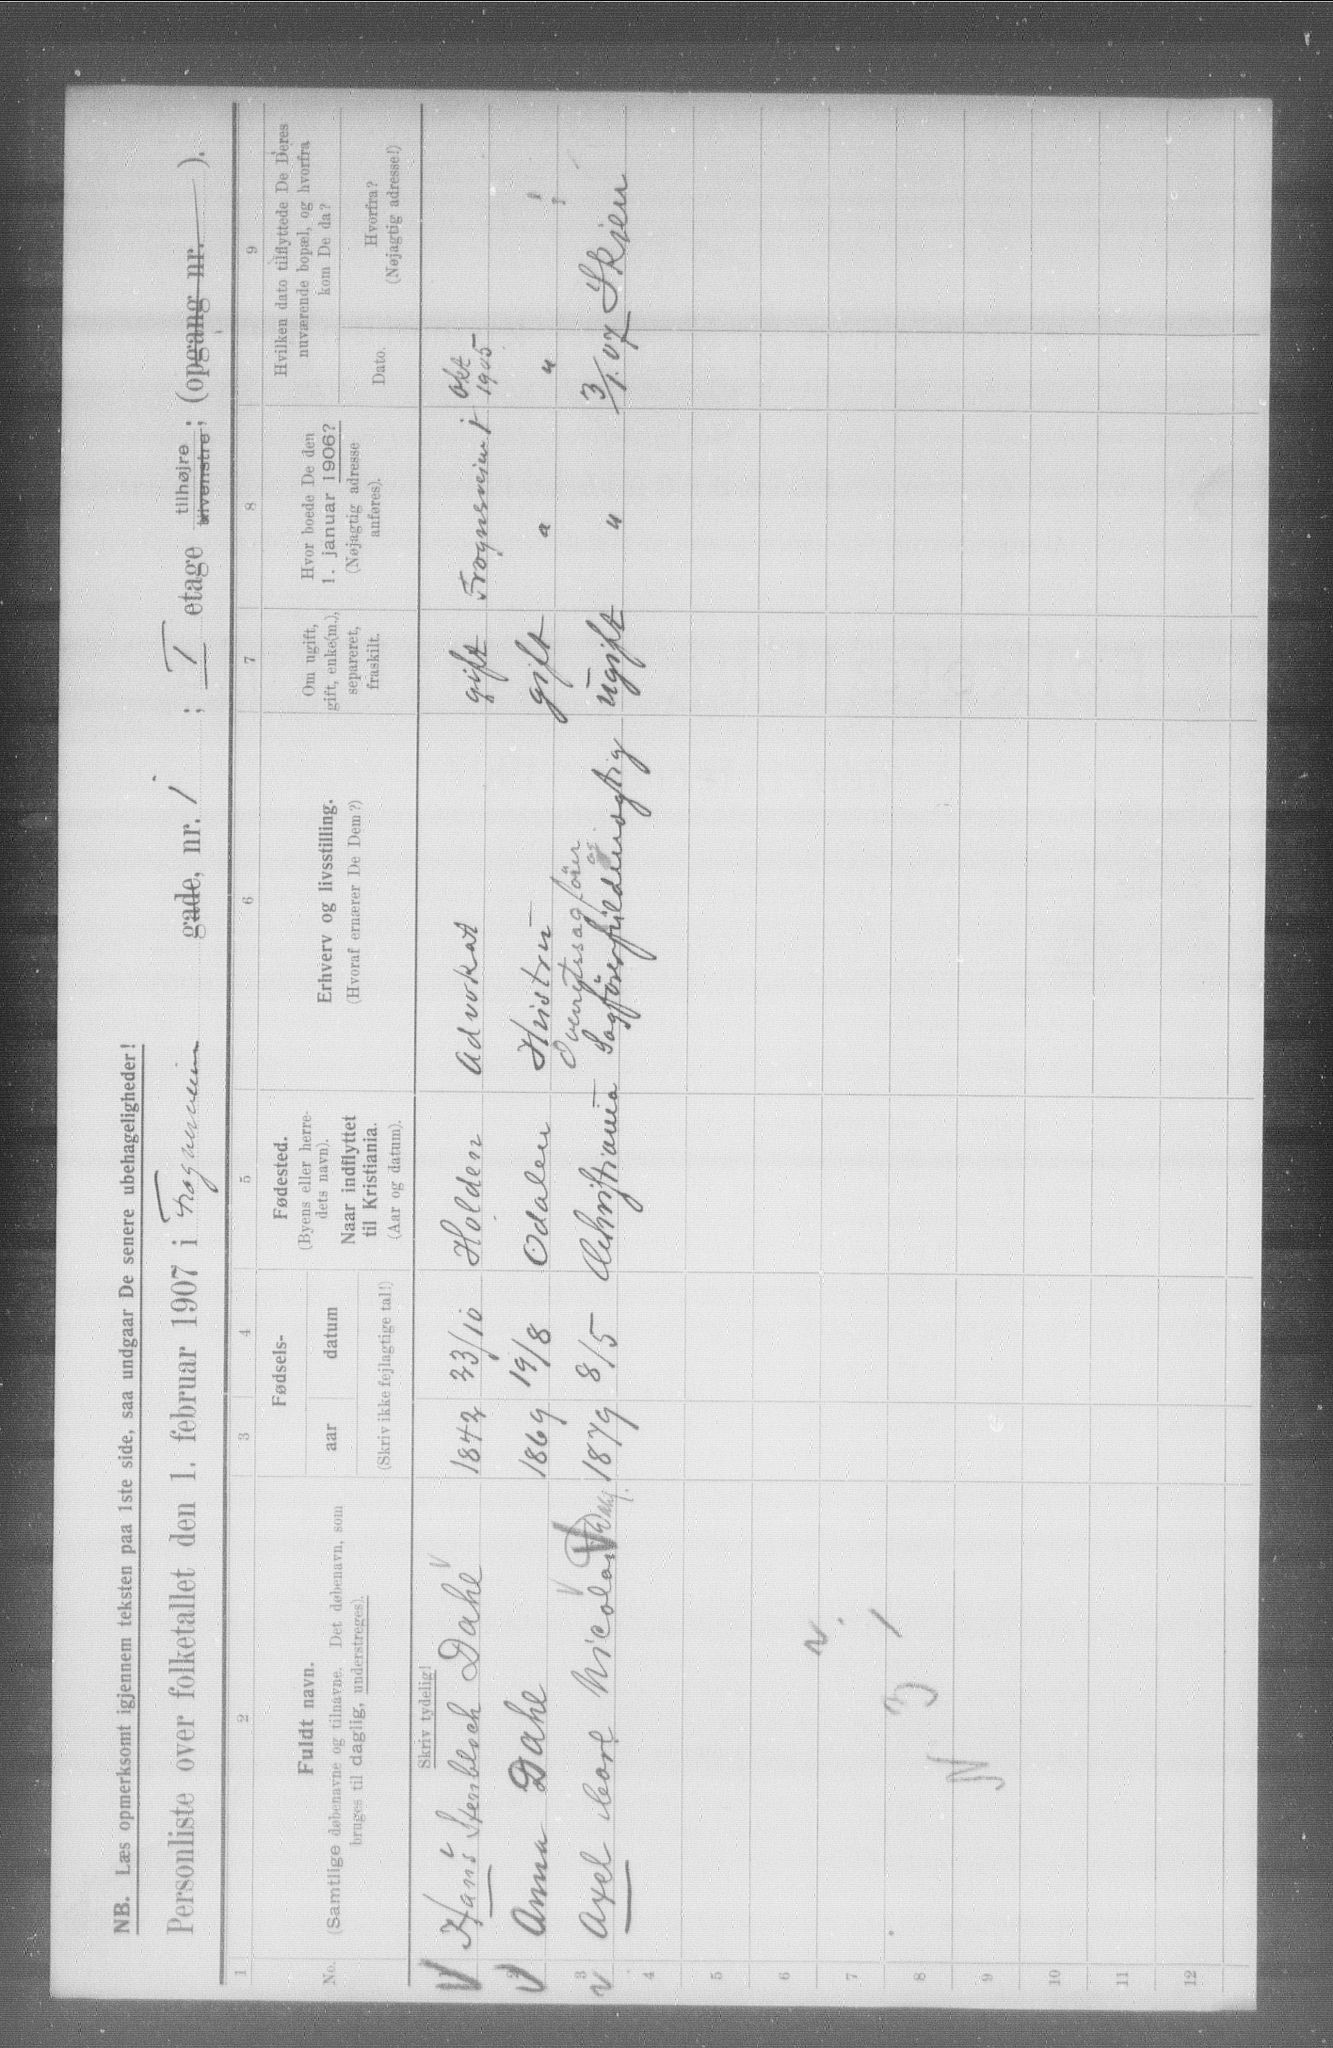 NB. Læs opmerksomt igjennem teksten paa 1ste side, saa undgaar De senere ubehageligheder!
Personliste over folketallet den 1. februar 1907 i Frognerveien gade, nr. 1 ; I etage tilhøjre tilvenstre; (opgang nr. — ).
1 2 3 4 5 6 7 8 9
No.
Fuldt navn.
(Samtlige døbenavne og tilnavne. Det døbenavn, som
bruges til daglig, understreges).
Fødsels-
aar datum
(Skriv ikke fejlagtige tal!)
Fødested.
(Byens eller herre-
dets navn).
Naar indflyttet
til Kristiania.
(Aar og datum).
Erhverv og livsstilling.
(Hvoraf ernærer De Dem?)
Om ugift,
gift, enke(m.),
separeret,
fraskilt.
Hvor boede De den
1. januar 1906?
(Nøjagtig adresse
anføres).
Hvilken dato tilflyttede De Deres
nuværende bopæl, og hvorfra
kom De da?
Dato.
Hvorfra?
(Nøjagtig adresse!)
Skriv tydelig!
1 Hans Stenbloch Dahl 1842 23/10 Holden Advokat gift Frognerveien 1 Okt 1905
2 Anna Dahl 1869 19/8 Odalen Hustru gift " "
Overretssagfører og
3 Axel Carl Nicolai Dahl 1879 8/5 Christiania Sagførerfuldmægtig ugift " 3/1.07 Skien
4
5
6
7
8
9
10
11
12
N.
3 1
N